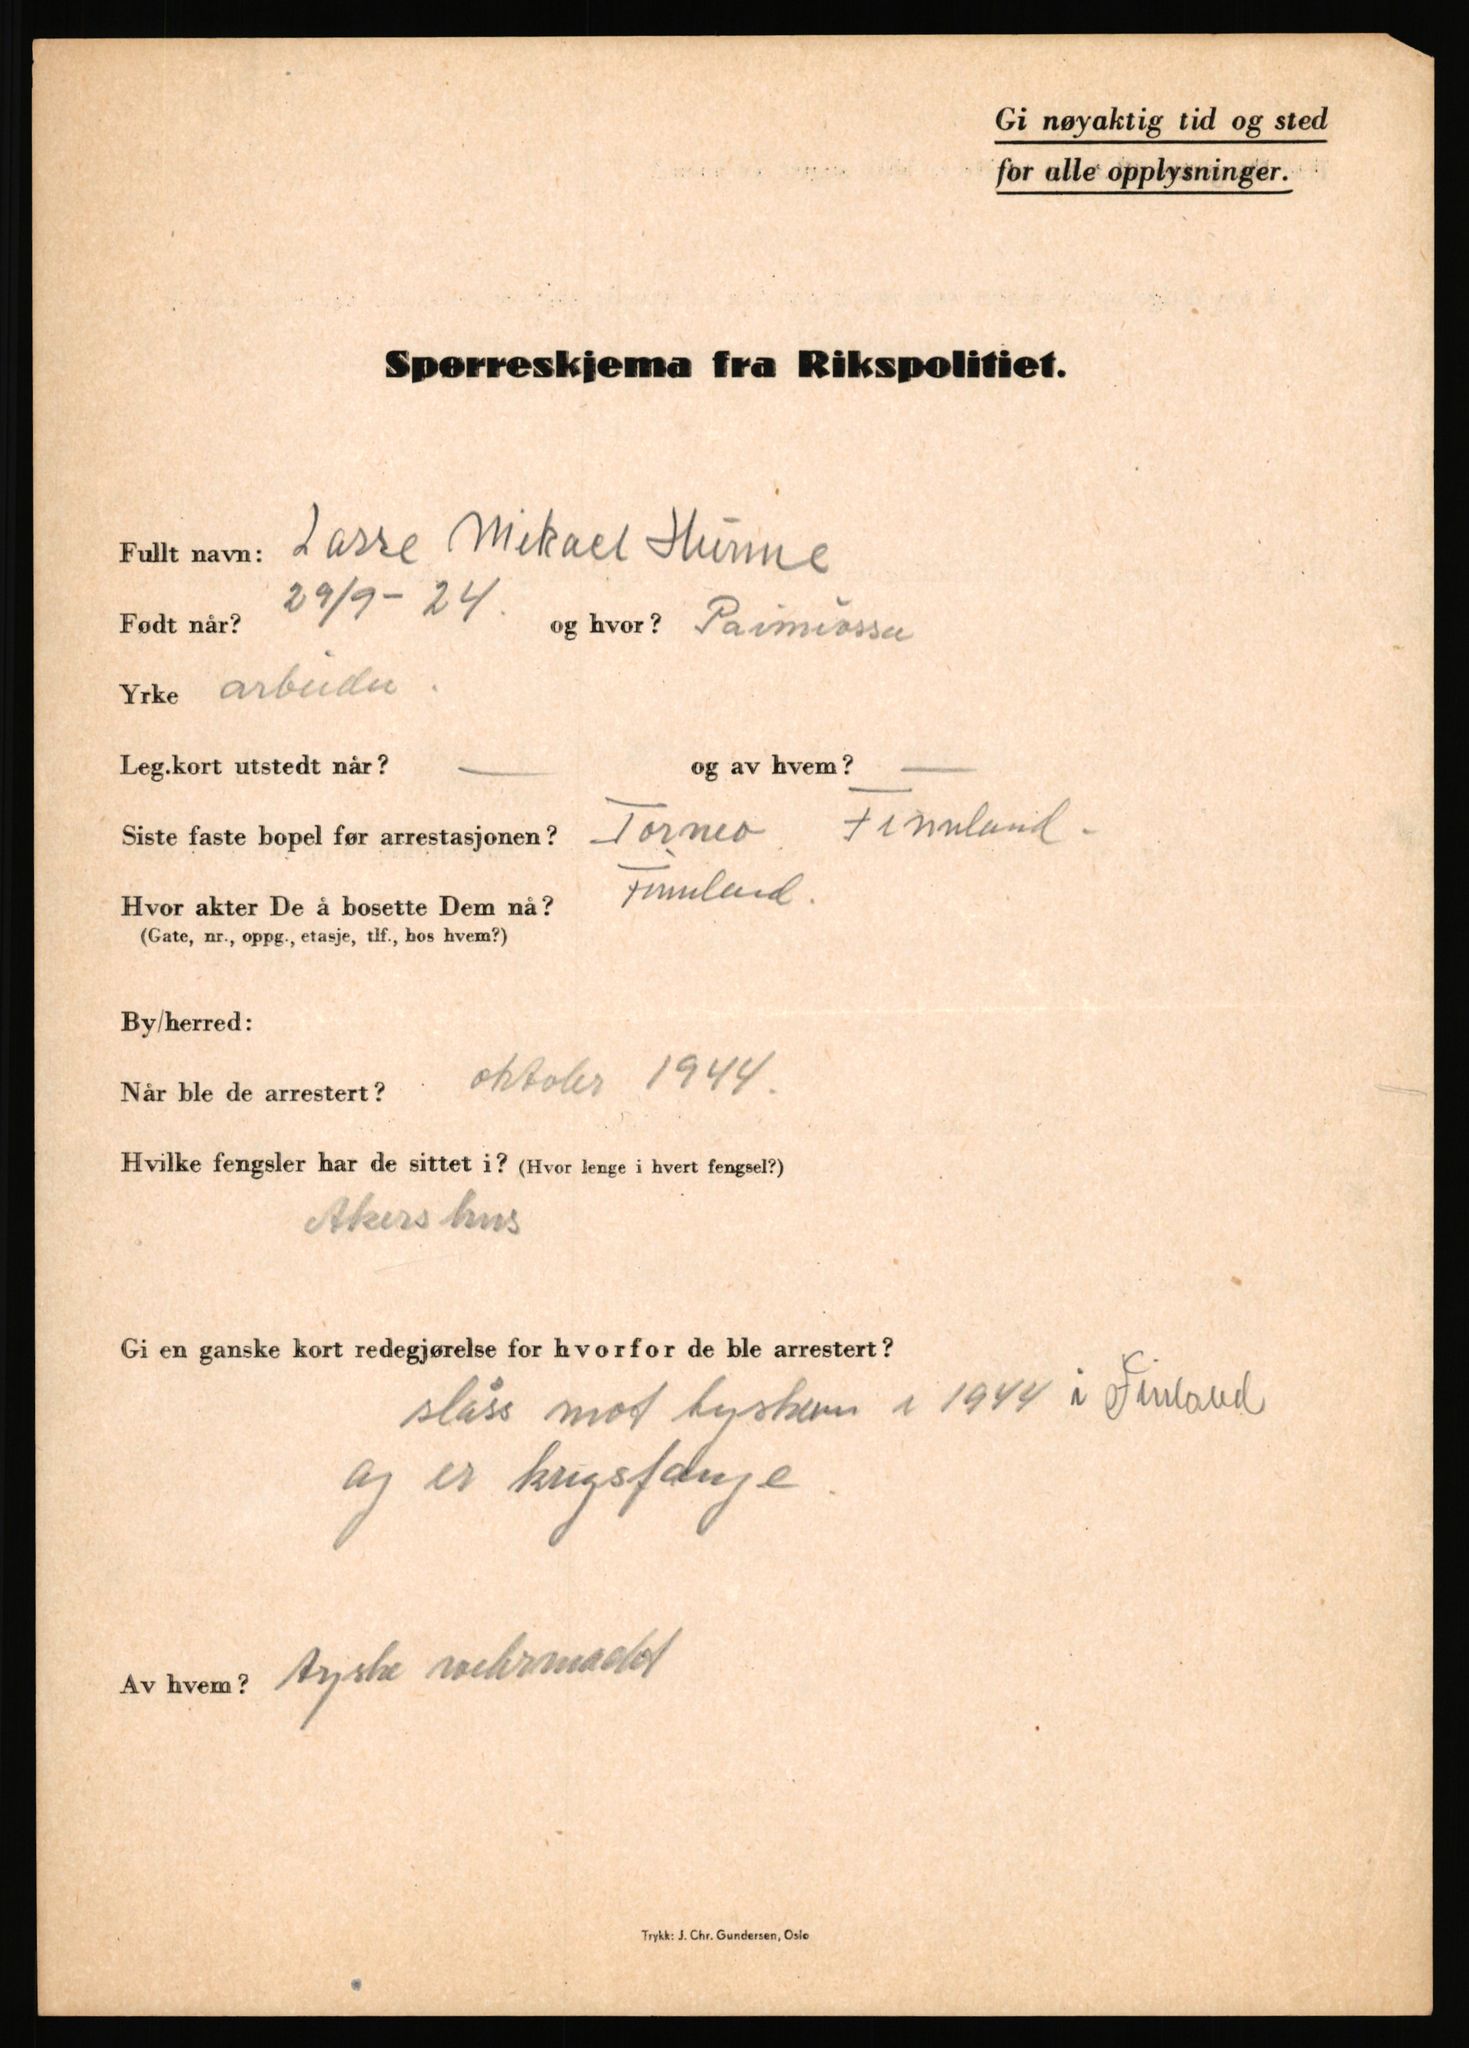 Gi nøyaktig tid og sted
for alle opplysninger.
Spørreskjema fra Rikspolitiet.
Fullt navn: Lasse Mikael Hurme
Født når? 29/9 - 24. og hvor? Paimiossa
Yrke arbeider.
Leg.kort utstedt når? — og av hvem? —
Siste faste bopel før arrestasjonen? Torneo Finnland.
Hvor akter De å bosette Dem nå? Finnland.
(Gate, nr., oppg., etasje, tlf., hos hvem?)
By/herred:
Når ble de arrestert? oktober 1944.
Hvilke fengsler har de sittet i? (Hvor lenge i hvert fengsel?)
Akershus
Gi en ganske kort redegjørelse for hvorfor de ble arrestert?
slåss mot tyskern i 1944 i Finland
og er krigsfange.
Av hvem? tyske wehrmacht
Trykk: J. Chr. Gundersen, Oslo